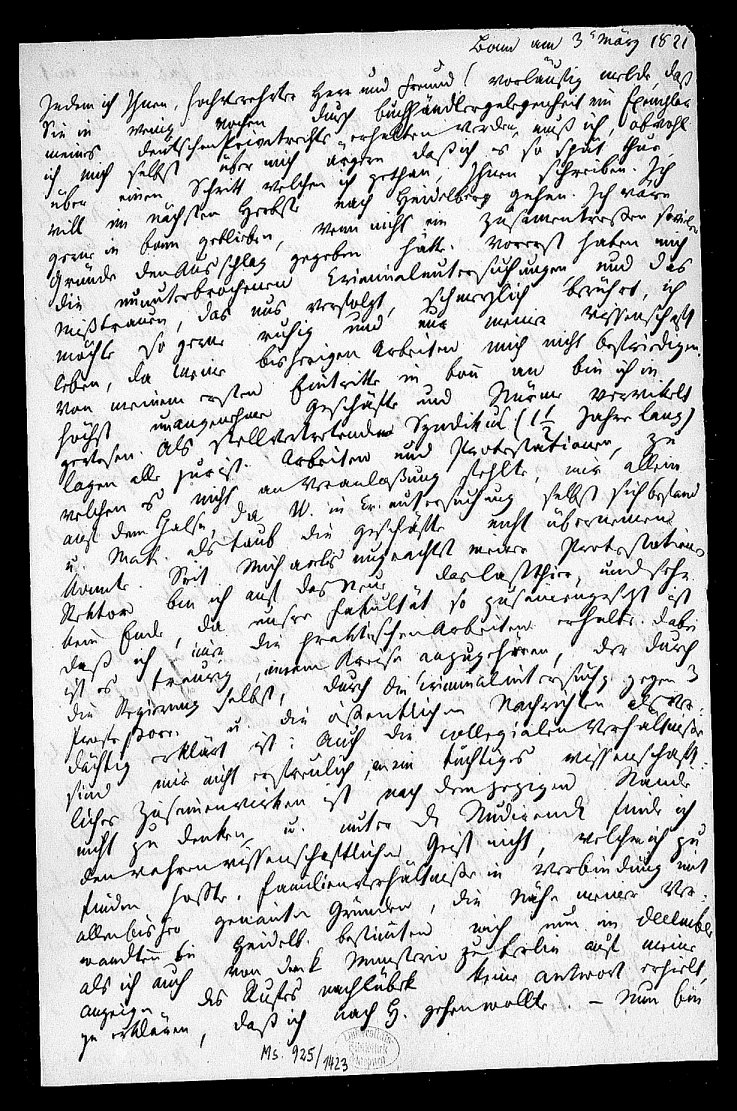 Bonn am 3t März 1821
Indem ich Ihnen, hochverehrter Herr und Freund! vorläufig melde, daß
Sie in wenig Wochen durch Buchhändlergelegenheit ein Exemplar
meines deutschen Privatrechts erhalten werden, muß ich, obwohl
ich mich selbst über mich ärgere daß ich es so spät thue,
über einen Schritt welchen ich gethan, Ihnen schreiben. Ich
will im nächsten Herbste nach Heidelberg gehen. Ich wäre
gerne in Bonn geblieben, wenn nicht ein Zusammentreffen so vieler
Gründe den Ausschlag gegeben hätte. Vorerst haben mich
die ununterbrochenen Kriminaluntersuchungen und das
Mißtrauen, das uns verfolgt, schmerzlich berührt, ich
möchte so gerne ruhig und nur meiner Wissenschaft
leben, da meine bisherigen Arbeiten mich nicht befriedigen.
Von meinem ersten Eintritte in Bonn an bin ich in
höchst unangenehme Geschäfte und Stürme verwickelt
gewesen. Als stellvertretender Syndikus (1 1/2 Jahre lang)
lagen alle jurist. Arbeiten und Protestationen, zu
welchen es nicht an Veranlaßung fehlte, mir allein
auf dem Halse, da W. in Kr. untersuchung selbst sich befand
u. Mak. als taub die Geschäfte nicht übernemen
konnte. Seit Michaelis ungeachtet meiner Protestation
Rektor bin ich auf das Neue der Last hier, und sehe
kein Ende, da unsre Fakultät so zusammengesezt ist
daß ich immer die praktischen Arbeiten erhalte. Dabei
ist es traurig, einem Kreise anzugehören, der durch
die Regierung selbst, durch die Criminaluntersuchg gegen 3
Professoren u. die öffentlichen Nachrichten als ver-
dächtig erklärt ist: Auch die collegialen Verhältnisse
sind mir nicht erfreulich, an ein tüchtiges wissenschaft-
liches Zusammenwirken ist nach dem jezigen Stande
nicht zu denken, u. unter den Studirenden finde ich
den wahren wissenschaftlichen Geist nicht, welchen ich zu
finden hoffte. Familienverhältnisse in Verbindung mit
allen bisher genannten Gründen, die Nähe meiner Ver-
wandten bei Heidelb. bestimmten mich nun im December
als ich auch von dem Ministerio zu Berlin auf meine
Anzeige des Rufes nach Lübek keine Antwort erhielt,
zu erklären, daß ich nach H. gehen wollte. – Nun bin
Ms. 925/1423